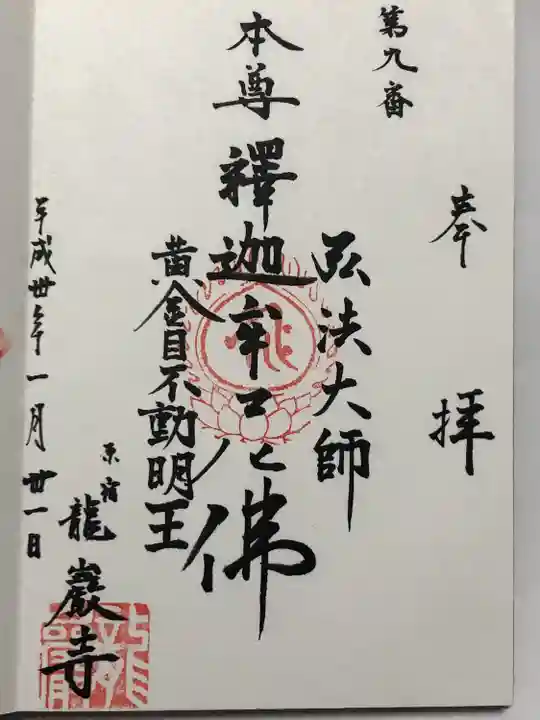 奉拝
第九番
弘法大師
本尊釋迦牟尼佛
黄金目不動明王
平成卅年一月廿一日
原宿
龍巖寺